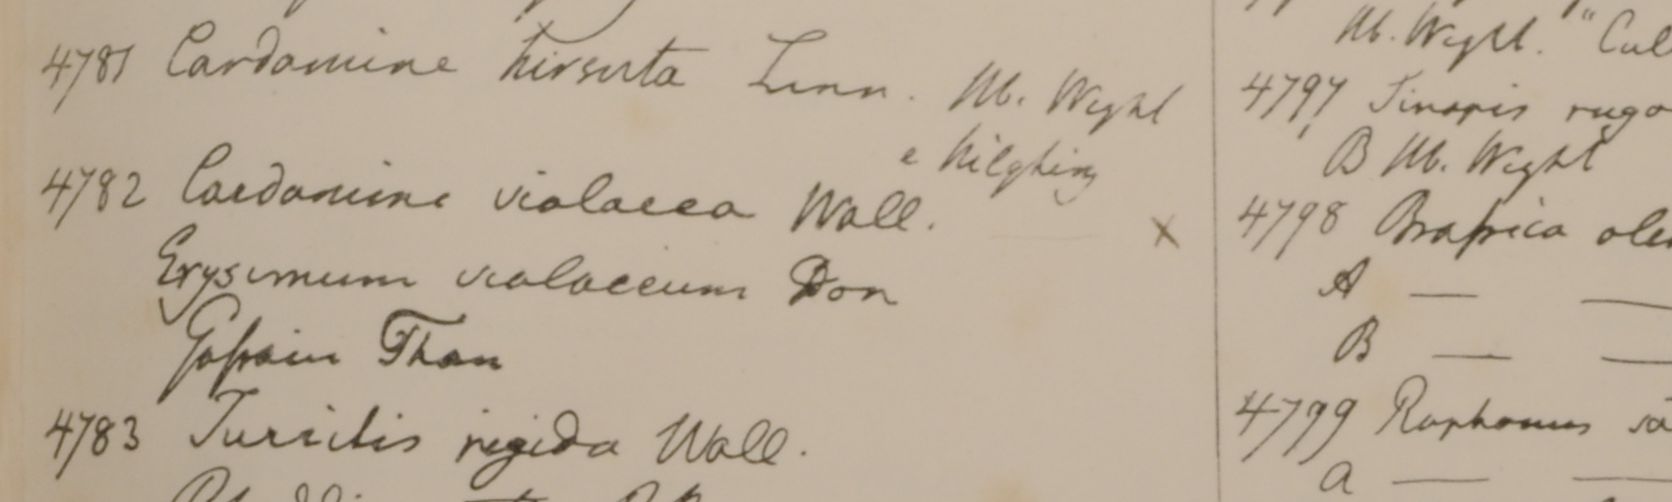 4781 Cardamine hirsuta Linn. Hb. Wight
e Nilghiry
4782 Cardamine violacea Wall.
Erysimum violaceum Don
Goſsain Than
4783 Turritis rigida Wall.
Hb. Wight. "Cal
4797 Sinapis rugo
B Hb. Wight
4798 Braſsica ole
A — —
B — —
4799 Raphanus sa
a — —